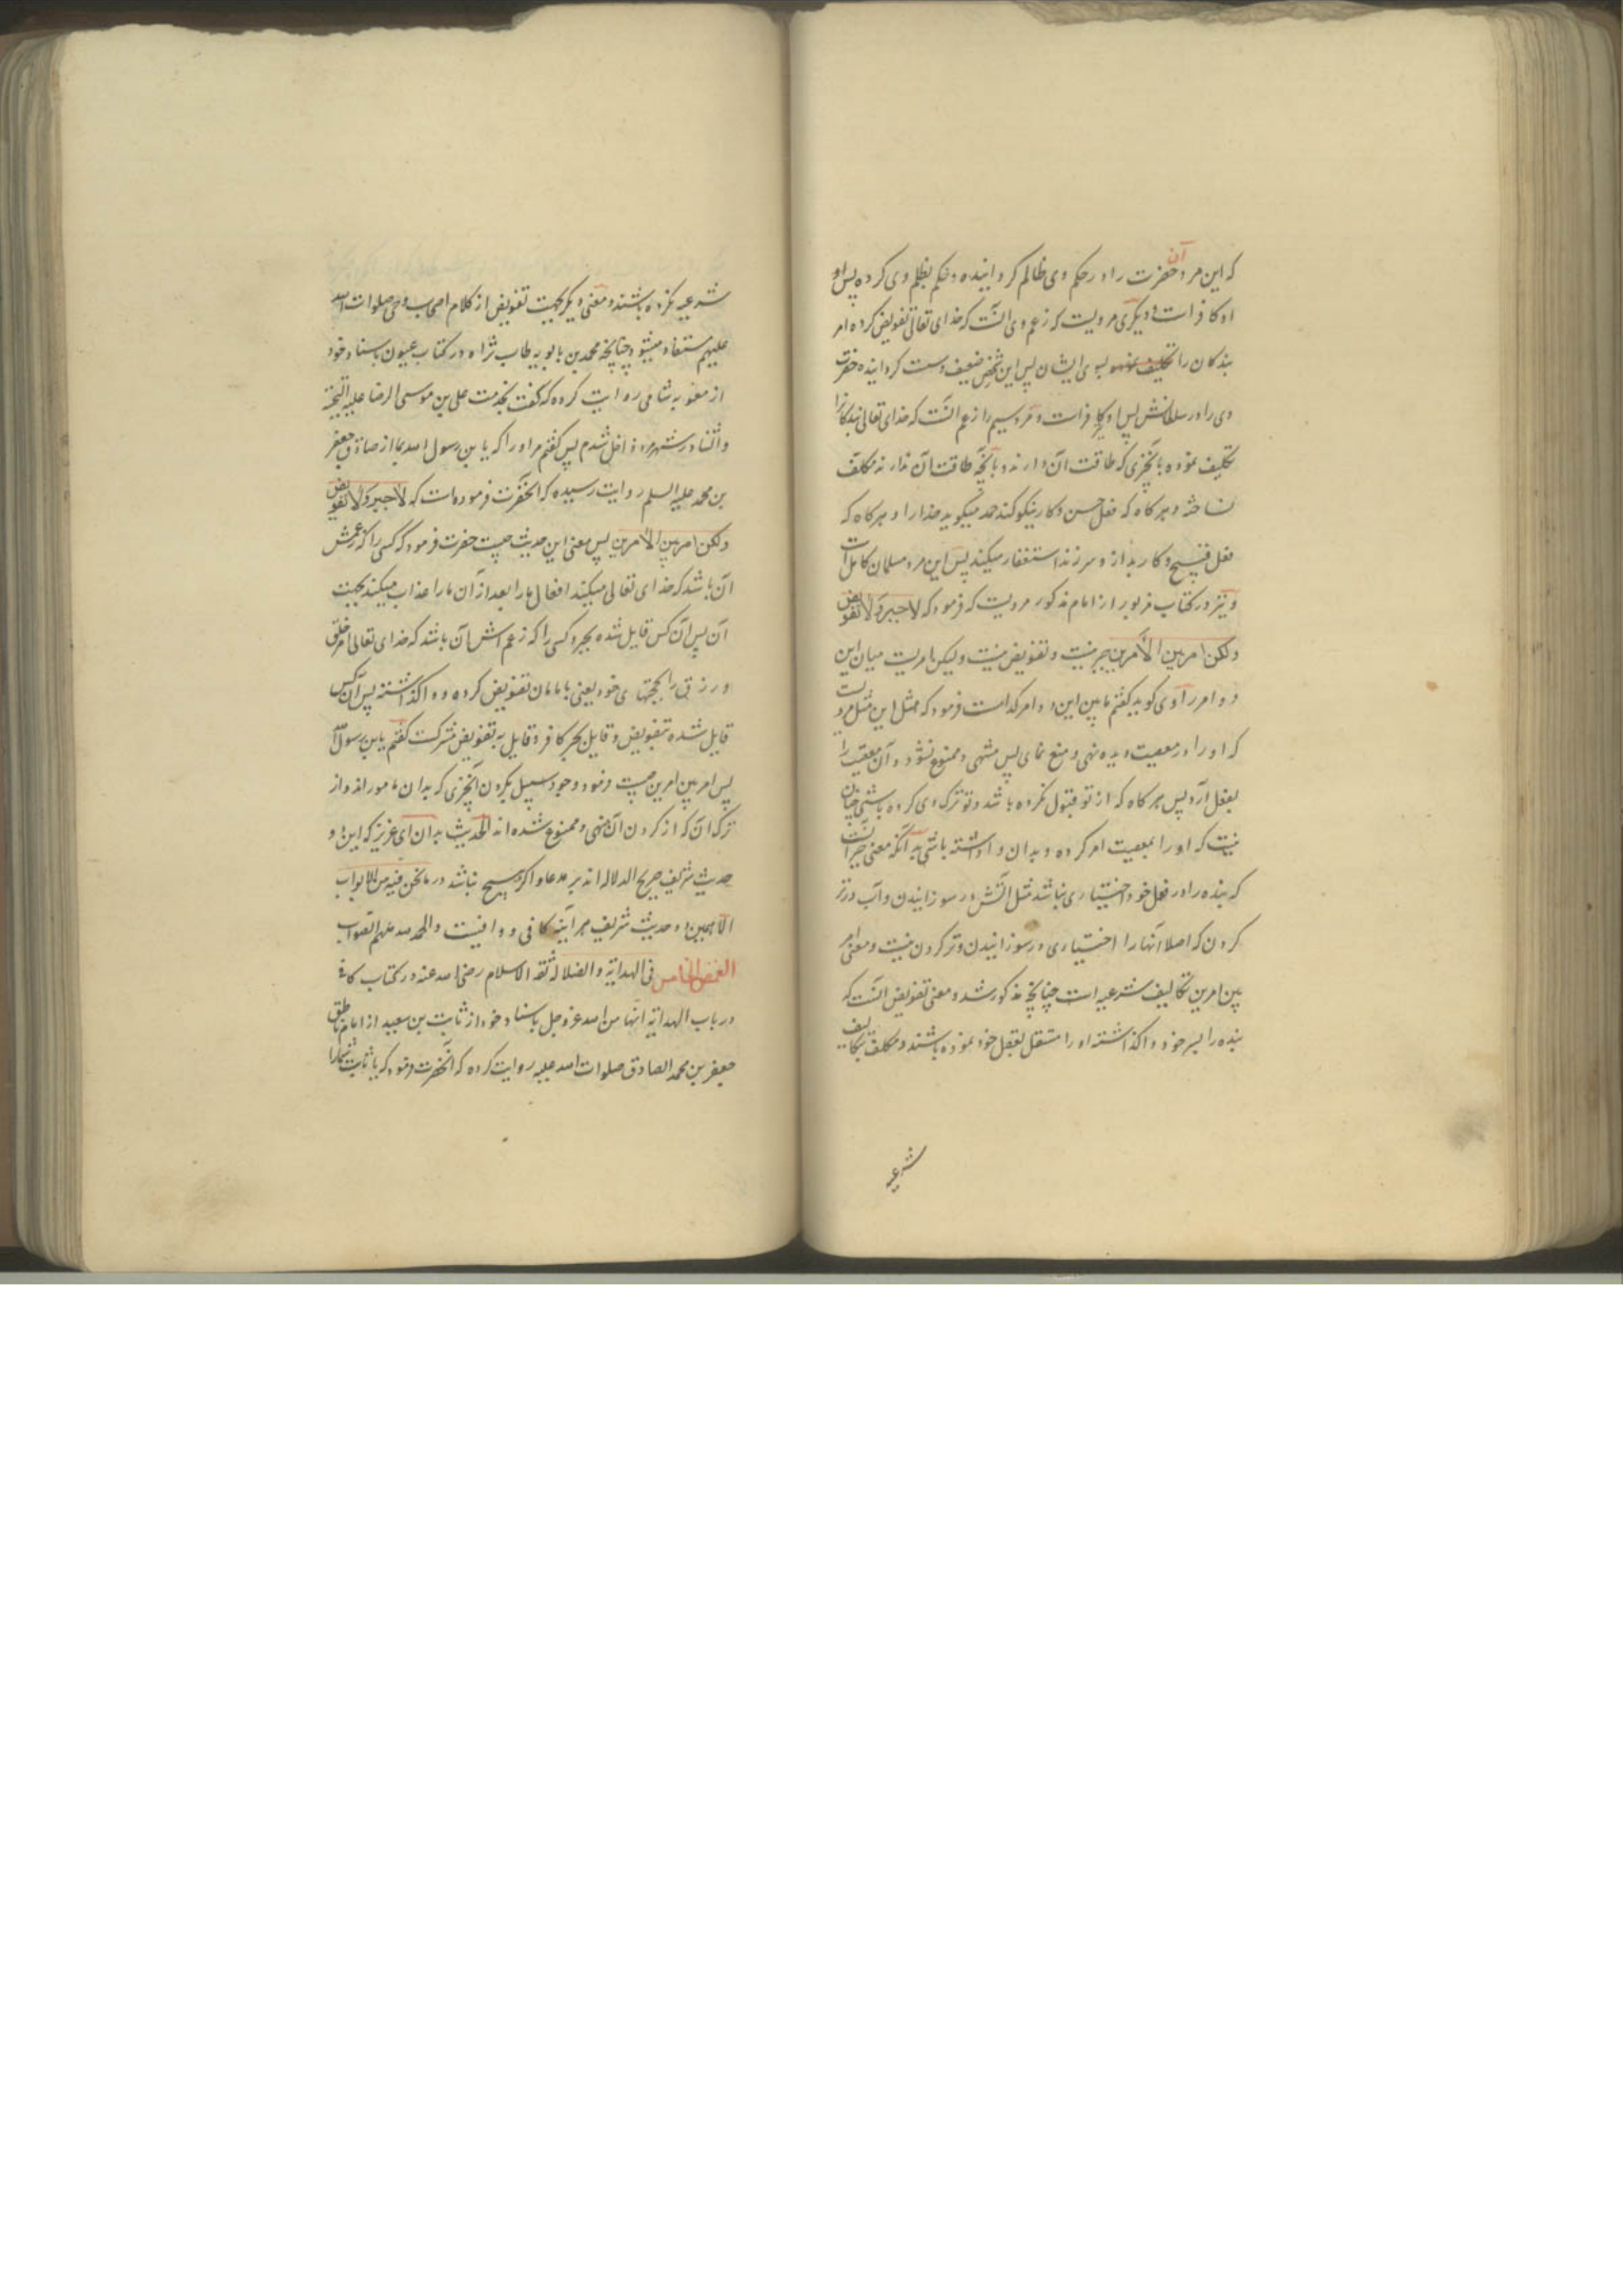 که این مرد آن حضرت را در حکم وی ظالم کردانیده و حکم بظلم وی کرده پس او
او کافرات و دیکری مردیست که زعم وی آنست که خدای تعالی تفویض کرده امر
بندکان را بسوی ایشان پس این شخص ضعیف و سست کردانیده حضرت
وی را در سلطانش پس او کافرات و مرد سیم را زعم آنست که خدای تعالی بندکانرا
تکلیف نموده بانچیزی که طاقت آن دارند و بانچه طاقت آن ندارند مکلف
نساخته و هرکاه که فعل حسن و کار نیکو کند حمد میکوید خدا را و هرکاه که
فعل قبیح و کار بد از و سر زند استغفار میکند پس این مرد مسلمان کامل است
و نیز در کتاب مزبور از امام مذکور مرویست که فرمود که لا جبر و لا تفویض
ولکن امر بین الأمرین جبر نیست و تفویض نیست ولیکن امریست میان این
دو امر راوی کوید کفتم ما بین این دو امر کدامست فرمود که مثل این مثل مردیست
که او را در معصیت دیده نهی و منع نمای پس منتهی و ممنوع نشود و آن معصیت را
بفعل آرد پس هرکاه که از تو قبول نکرده باشد و تو ترک وی کرده باشی چنان
نیست که او را بمعصیت امر کرده و بدان واداشته باشی بدآنکه معنی جبر آنست
که بنده را در فعل خود اختیاری نباشد مثل آتش در سوزانیدن و آب در تر
کردن که اصلا آنها را اختیاری در سوزانیدن و تر کردن نیست و معنی امر
بین امرین تکالیف شرعیه است چنانچه مذکور شد و معنی تفویض آنست که
بنده را بسر خود واکذاشته او را مستقل بفعل خود نموده باشند و مکلف بتکالیف
شرعیه
شرعیه نکرده باشند و معنی دیکر بجهت تفویض از کلام اصحاب وحی صلوات الله
علیهم مستفاد میشود چنانچه محمد بن بابویه طاب ثراه در کتاب عیون باسناد خود
از شامی روایت کرده که کفت بخدمت علی بن موسی الرضا علیه التحیة
والثنا در شهر مرو داخل شدم پس کفتم مر او را که یا بن رسول الله بما از صادق جعفر
بن محمد علیه السلم روایت رسیده که آنحضرت فرموده‌ات که لا جبر ولا تفویض
ولکن امر بین الأمرین پس معنی این حدیث چیست حضرت فرمود که کسی را که زعمش
آن باشد که خدای تعالی میکند افعال ما را بعد از آن ما را عذاب میکند بجهت
آن پس آن کس قایل شده بجبر و کسی را که زعم اش آن باشد که خدای تعالی امر خلق
و رزق را بحجتهای خود یعنی بامامان تفویض کرده و واکذاشته پس آن کس
قایل شده بتفویض و قایل بجبر کافر و قایل به تفویض مشرکست کفتم یا بن رسول الله
پس امر بین امرین چیست فرمود وجود سبیل بکردن آنچیزی که بدان مامورند و از
ترک آن که از کردن آن منهی و ممنوع شده‌اند الحدیث بدان ای عزیز که این دو
حدیث شریف صریح الدلاله‌اند بر مدعا و اکر هیچ نباشد در ما نحن فیه من الابواب
الا همین دو حدیث شریف هر آینه کافی و وافیست والحمد لله ملهم الصواب
الخامس فی الهدایة و الضلاله ثقة الاسلام رضی الله عنه در کتاب کافی
در باب الهدایة انها من الله عز و جل باسناد خود از ثابت بن سعید از امام ناطق
جعفر بن محمد الصادق صلوات الله علیه روایت کرده که آنحضرت فرمود که یا ثابت